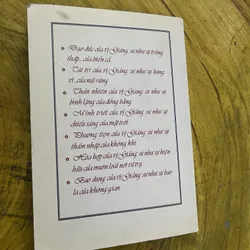 Đạo đức của vị Giảng sư như sự trầm
thấp.. của biển cả
Tài trí của vị Giảng sư như sự hùng
vĩ.. của núi rừng
Thản nhiên của vị Giảng sư như sự
bình lặng của dòng sông
Minh triết của vị Giảng sư như sự
chiếu sáng của mặt trời.
Phương tiện của vị Giảng sư như sự
thẩm nhập của không khí
Hòa hợp của vị Giảng sư như sự hiện
hữu của muôn loài nơi vũ trụ.
Bao dung của vị Giảng sư như sự bao
la của không gian